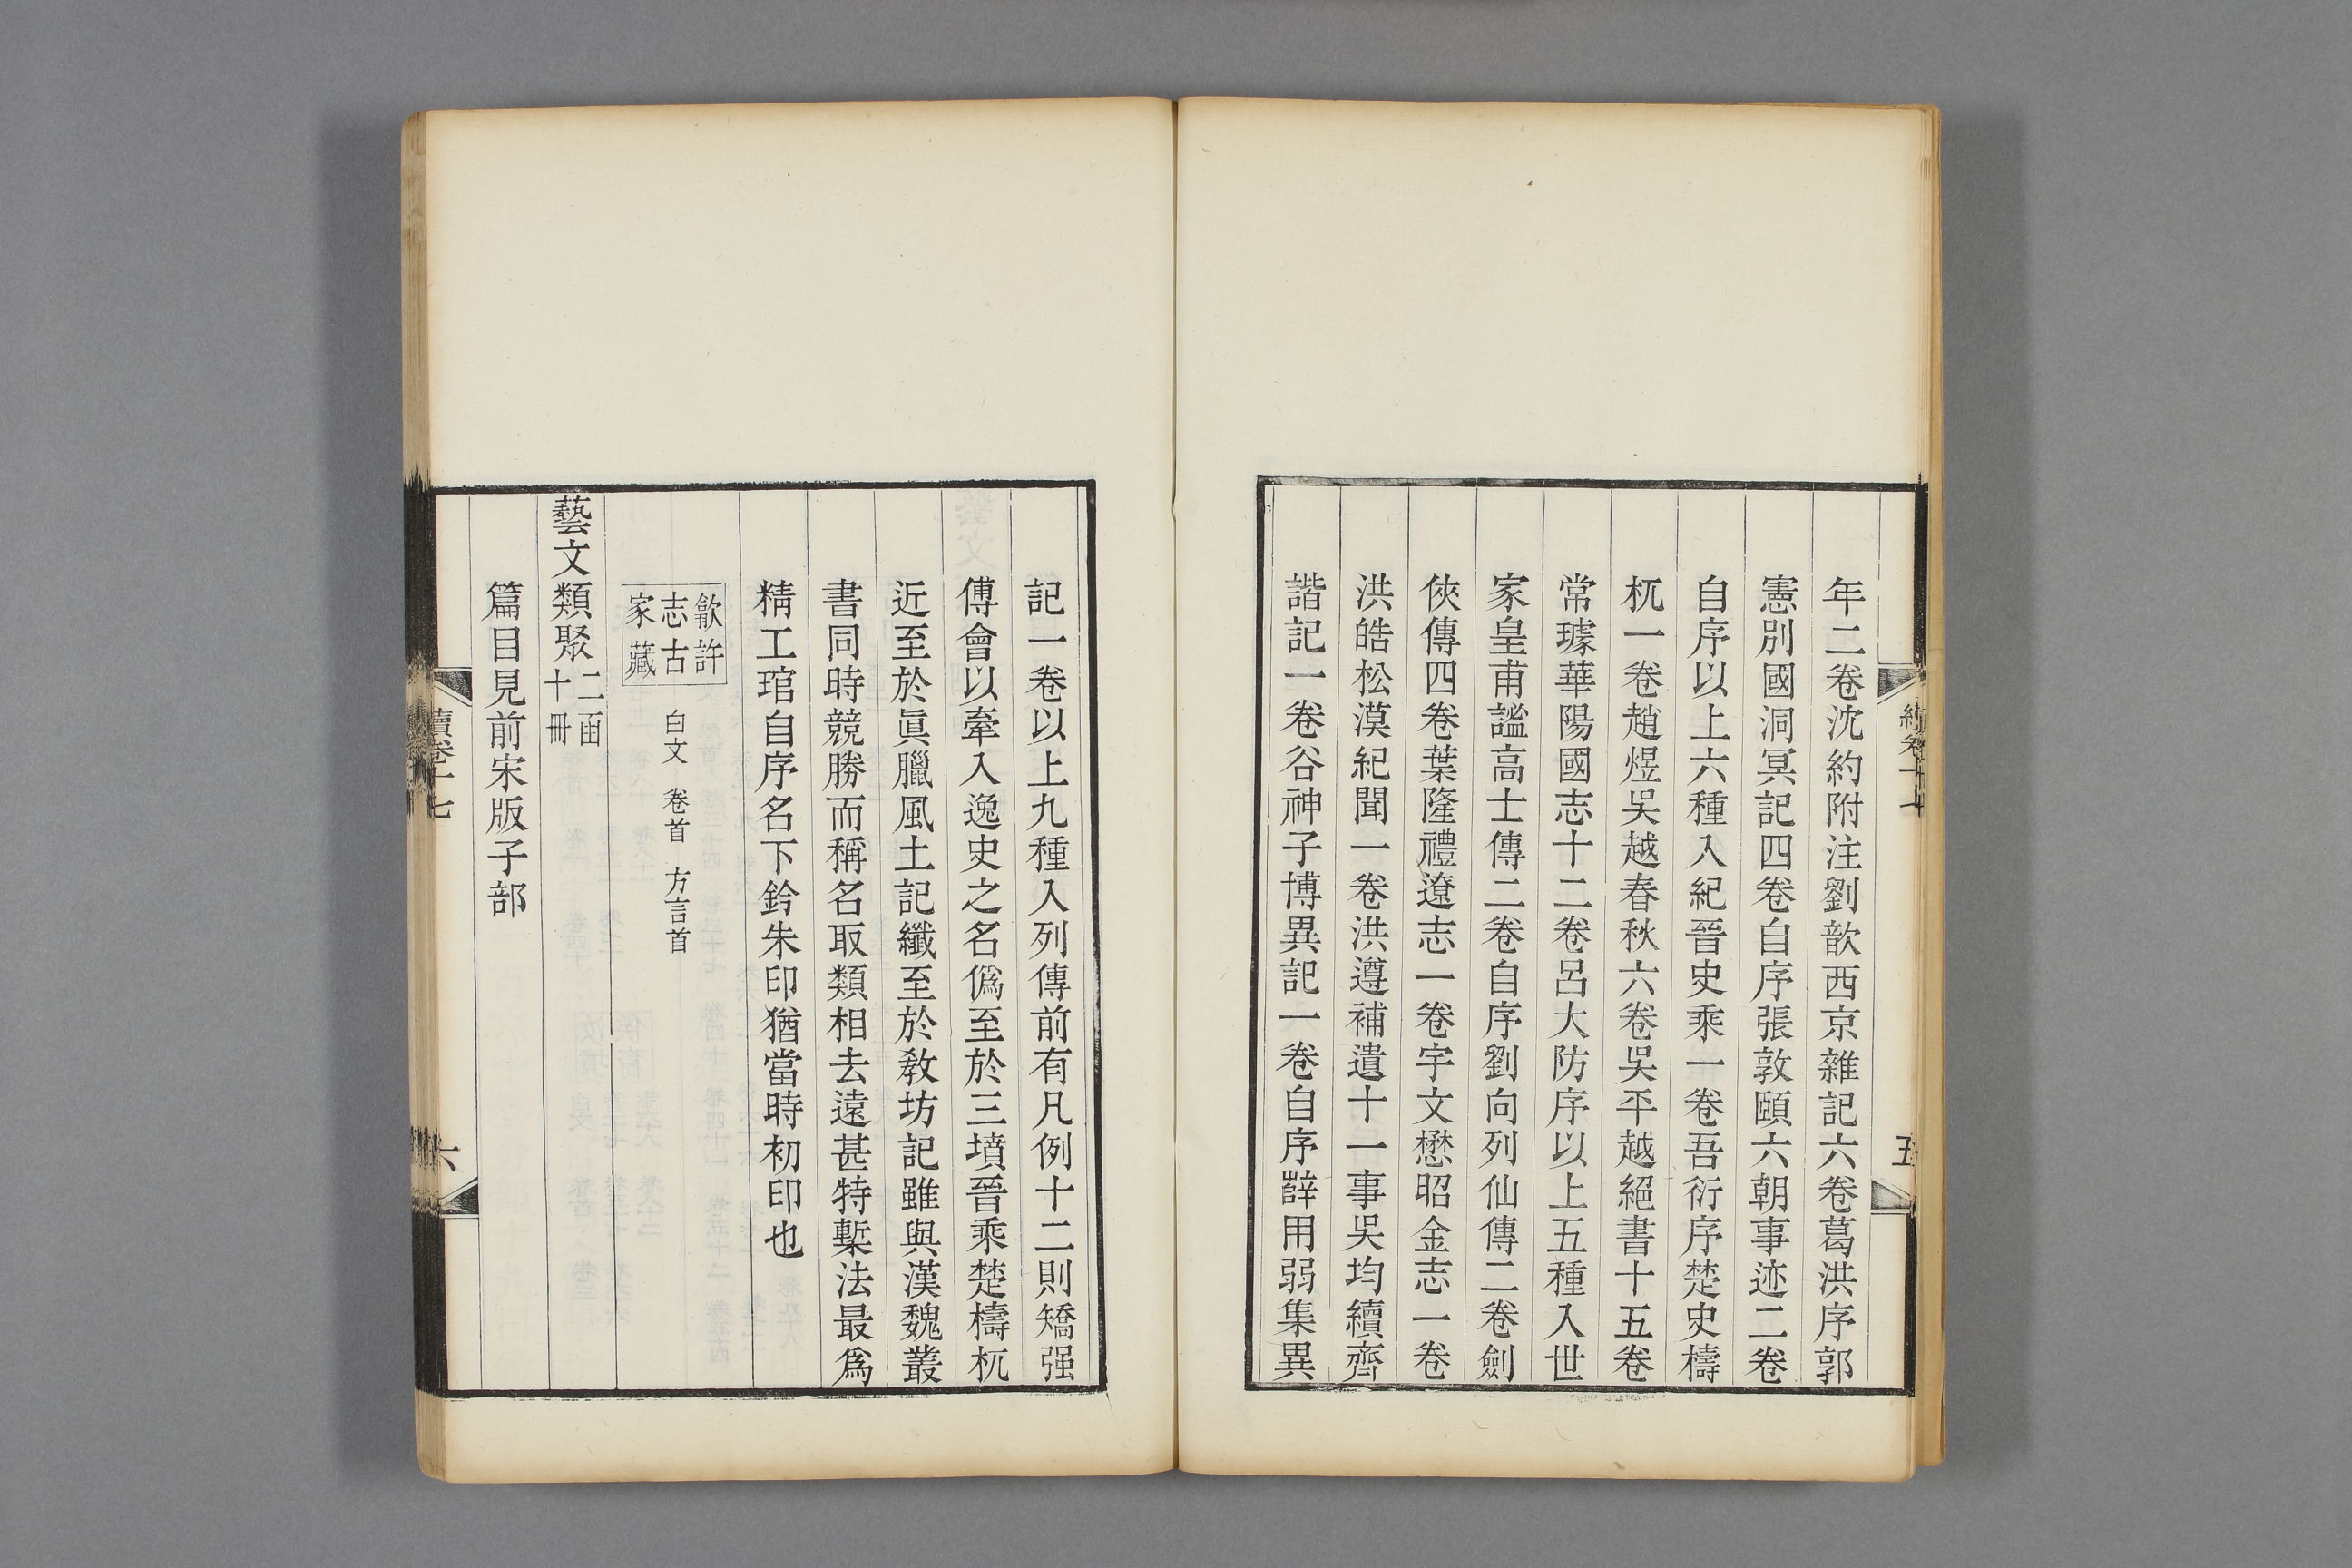 續卷十七
五
年二卷沈約附注劉歆西京雜記六卷葛洪序郭
憲別國洞冥記四卷自序張敦頤六朝事迹二卷
自序以上六種入紀晉史乘一卷吾衍序楚史檮
杌一卷趙煜吳越春秋六卷吳平越絕書十五卷
常璩華陽國志十二卷呂大防序以上五種入世
家皇甫謐高士傳二卷自序劉向列仙傳二卷劍
俠傳四卷葉隆禮遼志一卷宇文懋昭金志一卷
洪皓松漠紀聞一卷洪遵補遺十一事吳均續齊
諧記一卷谷神子博異記一卷自序薛用弱集異
記一卷以上九種入列傳前有凡例十二則矯强
傅會以牽入逸史之名僞至於三墳晉乘楚檮杌
近至於眞臘風土記纖至於敎坊記雖與漢魏叢
書同時競勝而稱名取類相去遠甚特槧法最爲
精工琯自序名下鈐朱印猶當時初印也
歙許
志古
家藏
白文 卷首 方言首
藝文類聚
二函
十冊
篇目見前宋版子部
續卷十七
六